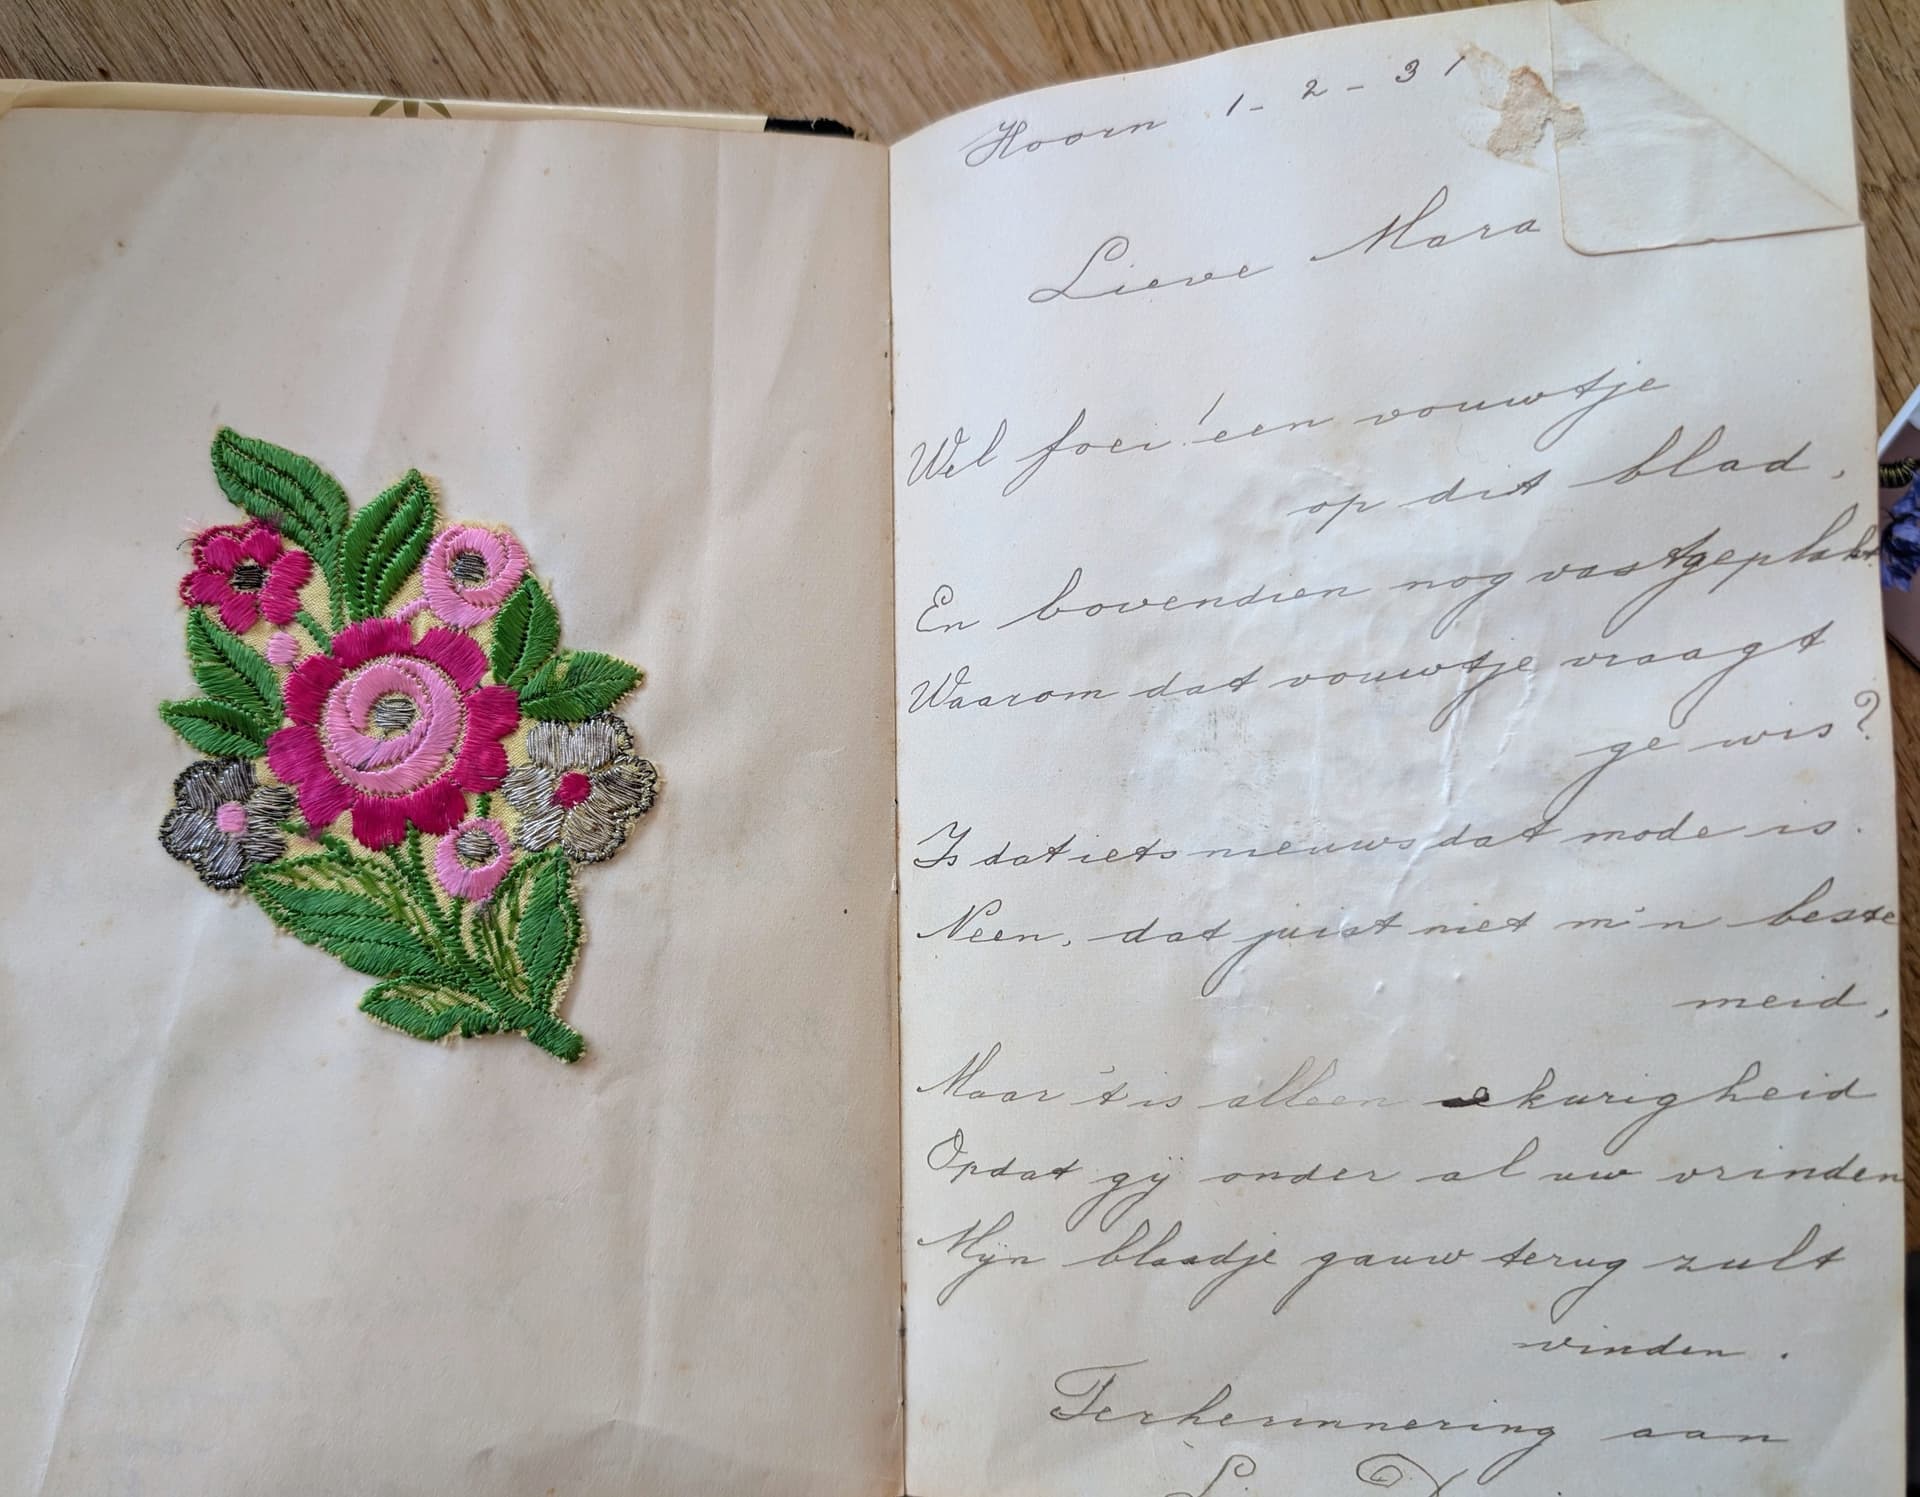 Hoorn 1-2-31
Lieve Mara
Wel foei! een vouwtje
op dit blad,
En bovendien nog vastgeplakt.
Waarom dat vouwtje vraagt
ge wis?
Is dat iets nieuws dat mode is.
Neen, dat juist niet m'n beste
meid,
Maar 't is alleen ekurigheid
Opdat gij onder al uw vrinden
Mijn blaadje gauw terug zult
vinden.
Terherinnering aan